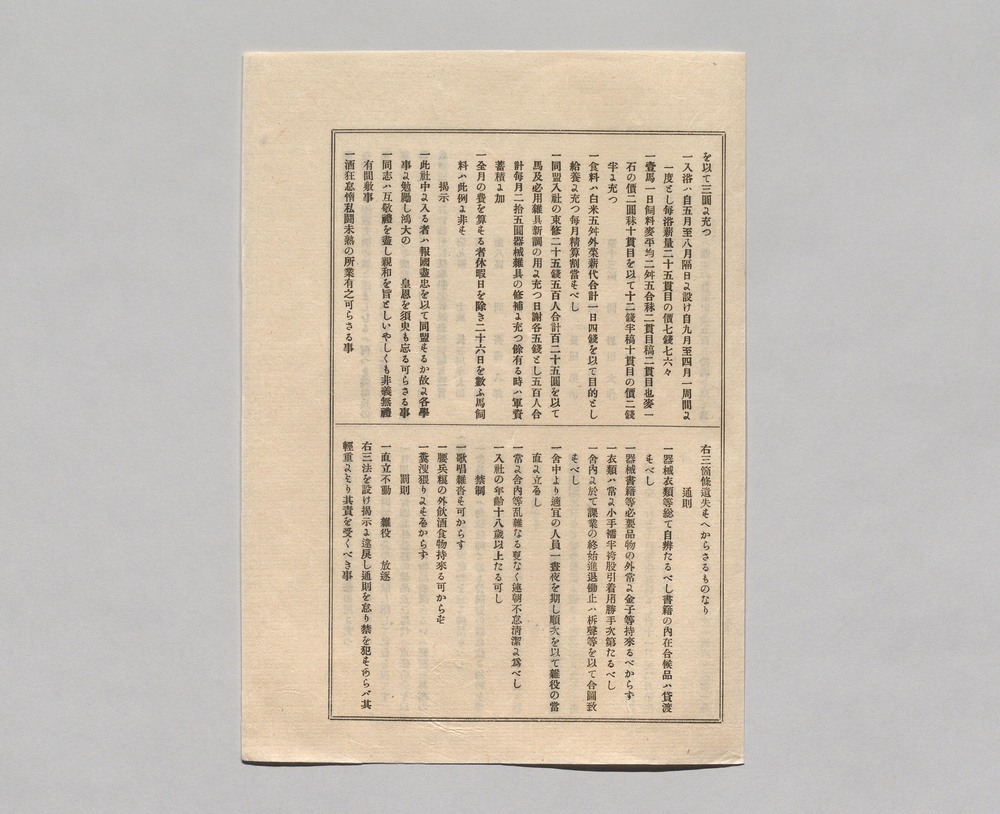 を以て三圓ゟ充つ
一入浴ハ自五月至八月隔日ゟ設け自九月至四月一周間ゟ
一度とし毎浴薪量二十五貫目の價七錢七六々
一壹馬一日飼料麥平均二舛五合秣二貫目稿二貫目也麥一
石の價二圓秣十貫目を以て十二錢半稿十貫目の價二錢
半ゟ充つ
一食料ハ白米五舛外菜薪代合計一日四錢を以て目的とし
給養ゟ充つ毎月精算割當そべし
一同盟入社の束修二十五錢五百人合計百二十五圓を以て
馬及必用雜具新調の用ゟ充つ日謝各五錢とし五百人合
計毎月二拾五圓器械雜具の修補ゟ充つ餘有る時ハ軍資
蓄積ゟ加
一全月の費を算そる者休暇日を除き二十六日を數ふ馬飼
料ハ此例ゟ非そ
揭示
一此社中ゟ入る者ハ報國盡忠を以て同盟そるか故ゟ各學
事ゟ勉勵し鴻大の 皇恩を須臾も忘る可らさる事
一同志ハ互敬禮を盡し親和を旨としいやしくも非義無禮
有間敷事
一酒狂怠惰私鬪未熟の所業有之可らさる事
右三箇條遺失そへからさるものなり
通則
一器械衣類等總て自辨たるべし書籍の內在合候品ハ貸渡
そべし
一器械書籍等必要品物の外常ゟ金子等持來るべからす
一衣類ハ常ゟ小手襦半袴股引着用勝手次第たるべし
一舍內ゟ於て課業の終始進退働止ハ柝聲等を以て合圖致
そべし
一舍中より適宜の人員一晝夜を期し順次を以て雜役の當
直ゟ立るし
一常ゟ舍內等乱雜なる更なく連朝不怠清潔ゟ爲べし
一入社の年齡十八歲以上たる可し
禁制
一歌唱雜沓そ可からす
一腰兵粮の外飮酒食物持來る可からそ
一糞溲猥りゟそるからす
罰則
一直立不動 雜役 放逐
右三法を設け揭示ゟ違戾し通則を怠り禁を犯そあらバ其
輕重ゟより其責を受くべき事